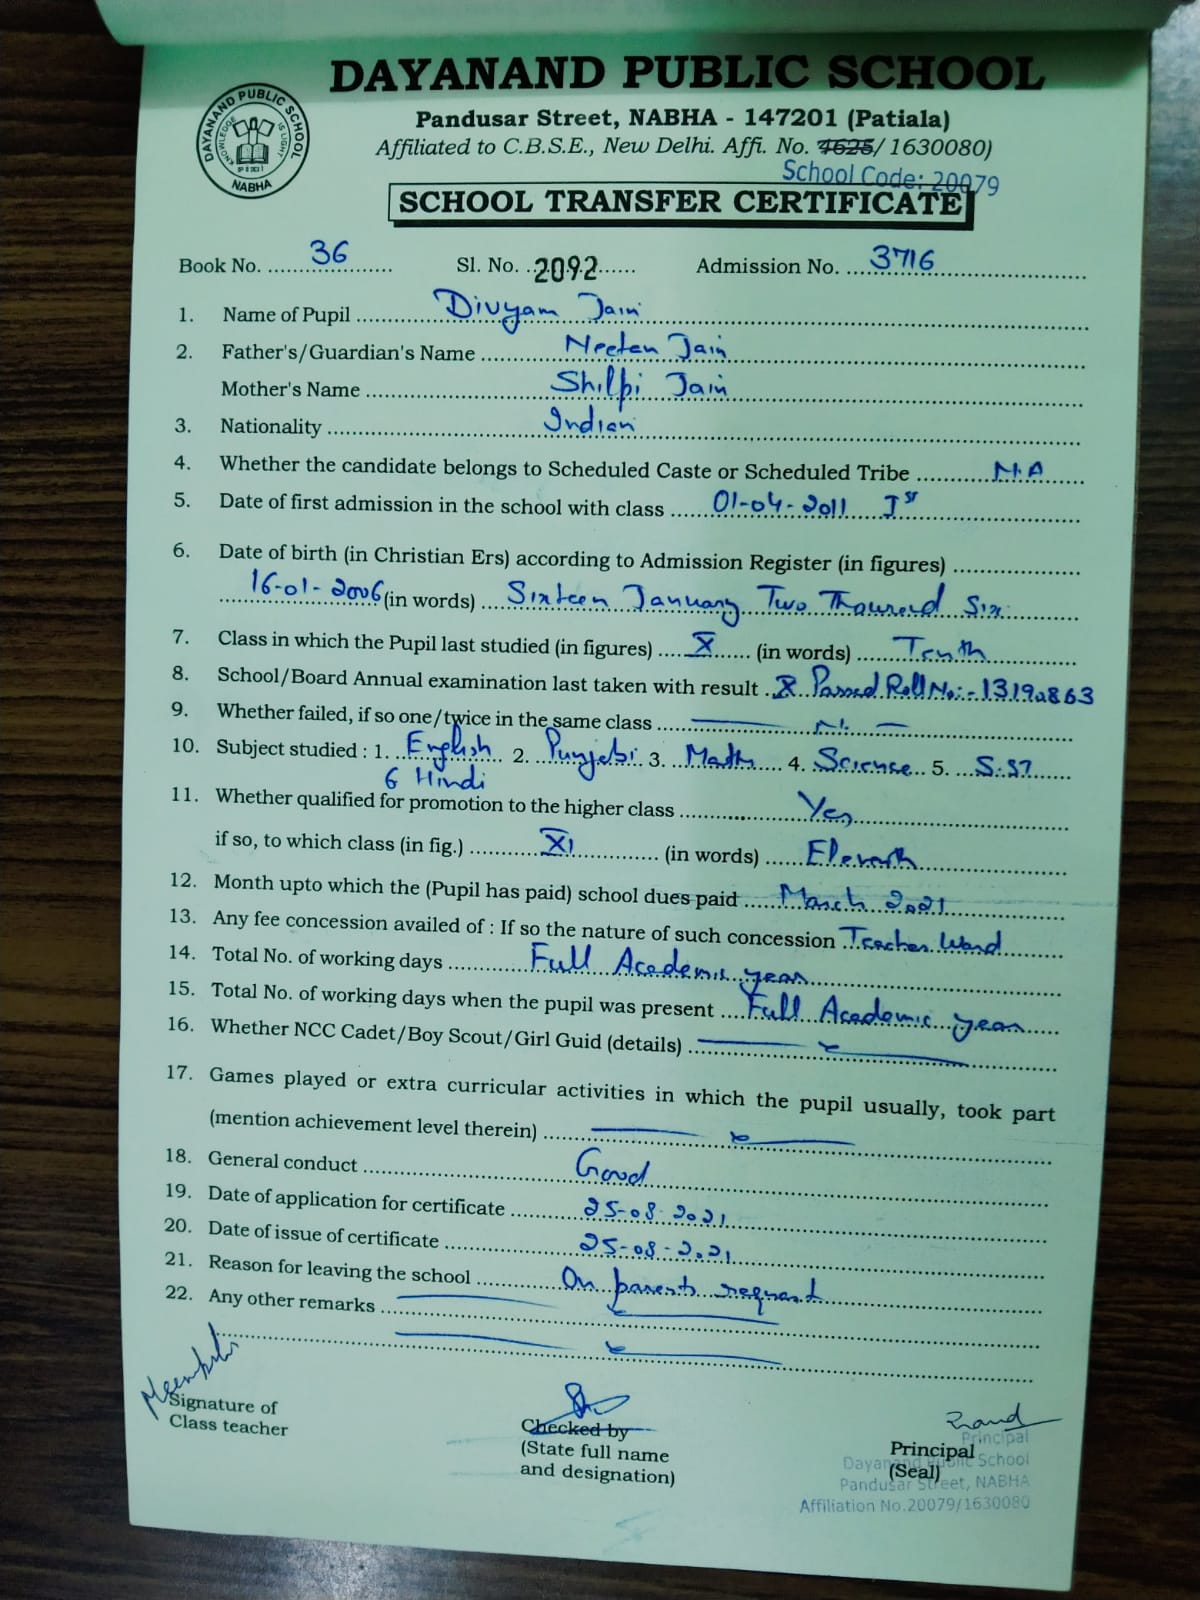 DAYANAND PUBLIC SCHOOL
Pandusar Street, NABHA - 147201 (Patiala)
Affiliated to C.B.S.E., New Delhi. Affi. No. 4625/ 1630080)
School Code: 20079
DAYANAND PUBLIC SCHOOL
KNOWLEDGE IS LIGHT
NABHA
SCHOOL TRANSFER CERTIFICATE
Book No. 36 Sl. No. 2092 Admission No. 3716
1. Name of Pupil Divyam Jain
2. Father's/Guardian's Name Neeten Jain
Mother's Name Shilpi Jain
3. Nationality Indian
4. Whether the candidate belongs to Scheduled Caste or Scheduled Tribe N.A
5. Date of first admission in the school with class 01-04-2011 Ist
6. Date of birth (in Christian Ers) according to Admission Register (in figures)
16-01-2006 (in words) Sixteen January Two Thousand Six
7. Class in which the Pupil last studied (in figures) X (in words) Tenth
8. School/Board Annual examination last taken with result X Passed Roll No:- 13192863
9. Whether failed, if so one/twice in the same class
10. Subject studied : 1. English 2. Punjabi 3. Math 4. Science 5. S.ST
6 Hindi
11. Whether qualified for promotion to the higher class Yes
if so, to which class (in fig.) XI (in words) Eleventh
12. Month upto which the (Pupil has paid) school dues paid March 2021
13. Any fee concession availed of : If so the nature of such concession Teacher Ward
14. Total No. of working days Full Academic year
15. Total No. of working days when the pupil was present Full Academic year
16. Whether NCC Cadet/Boy Scout/Girl Guid (details)
17. Games played or extra curricular activities in which the pupil usually, took part
(mention achievement level therein)
18. General conduct Good
19. Date of application for certificate 25-08-2021
20. Date of issue of certificate 25-08-2021
21. Reason for leaving the school On parents request
22. Any other remarks
Meenakshi
Signature of
Class teacher
Checked by
(State full name
and designation)
Principal
(Seal)
Principal
Dayanand Public School
Pandusar Street, NABHA
Affiliation No.20079/1630080